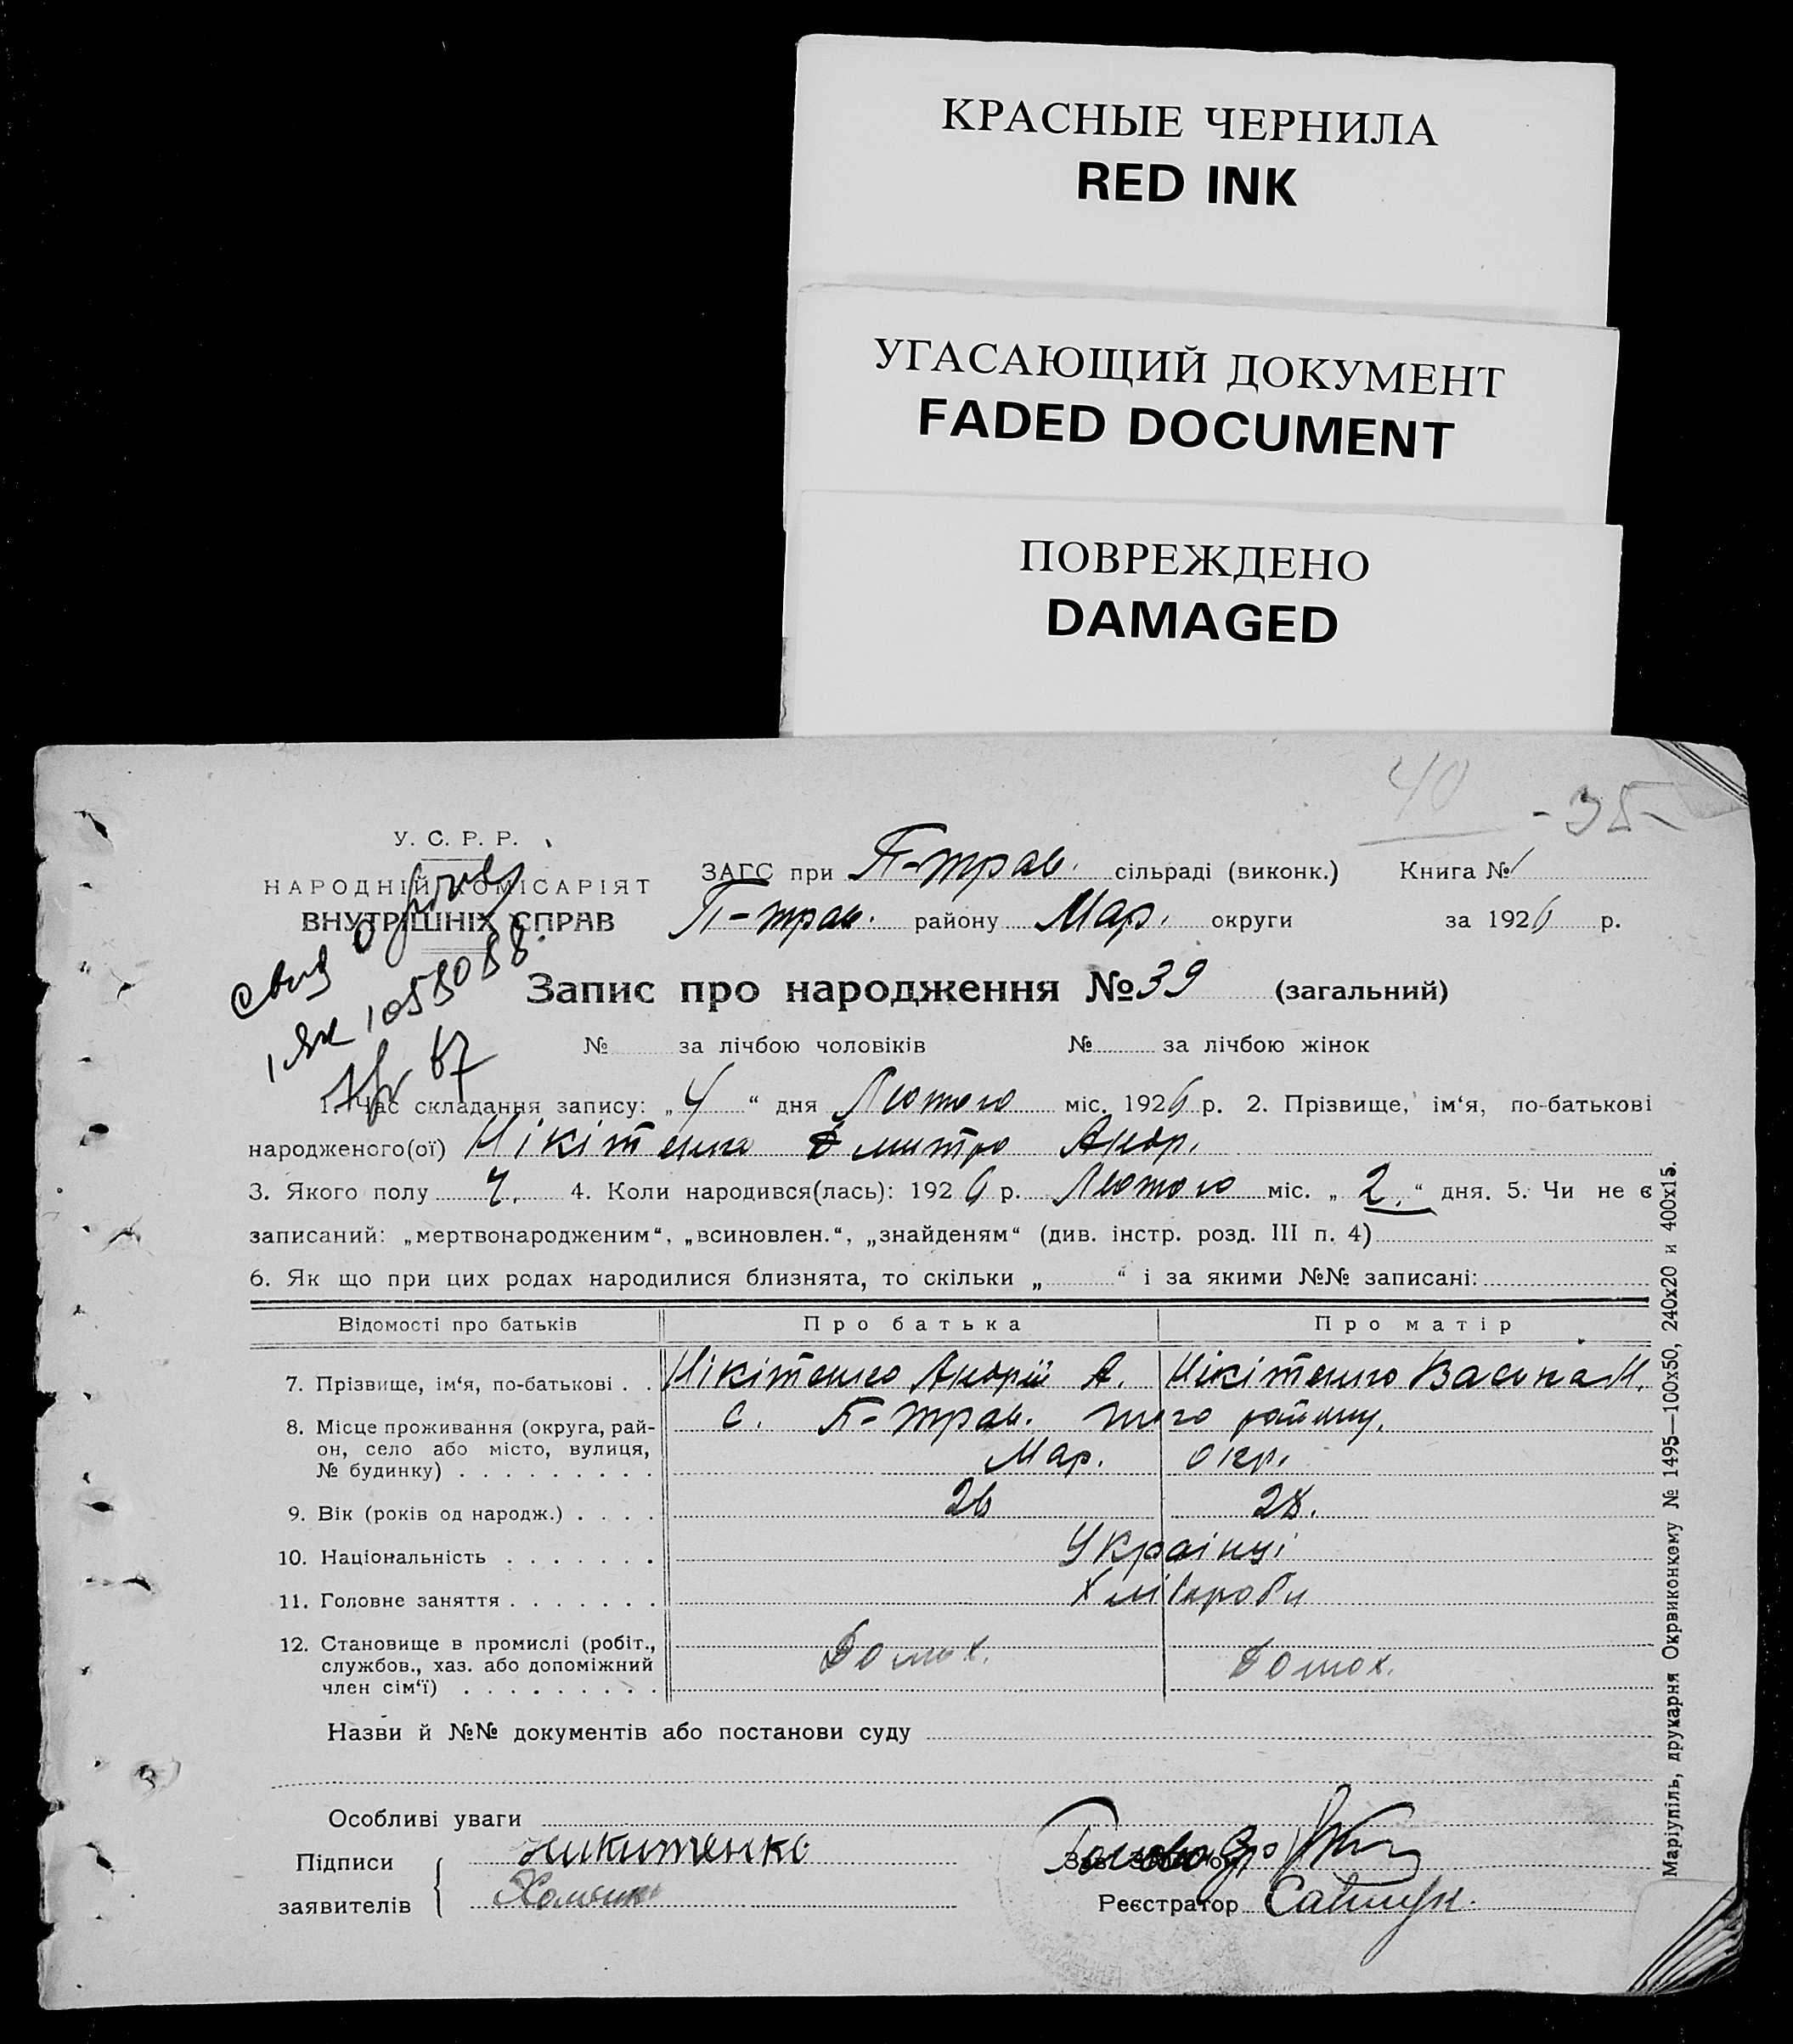 КРАСНЫЕ ЧЕРНИЛА
RED INK
УГАСАЮЩИЙ ДОКУМЕНТ
FADED DOCUMENT
ПОВРЕЖДЕНО
DAMAGED
40
-35-
У. С. Р. Р.
НАРОДНІЙ КОМІСАРІЯТ
ВНУТРІШНІХ СПРАВ
ЗАГС при П-трав. сільраді (виконк.) Книга № 1
П-трав. району Мар. округи за 1926 р.
свид о
1 1053088
67
Запис про народження № 39 (загальний)
№ за лічбою чоловіків № за лічбою жінок
1. Час складання запису: „4“ дня Лютого міс. 1926 р. 2. Прізвище, ім‘я, по-батькові
народженого(ої) Нікітенко Дмитро Андр.
3. Якого полу Ч. 4. Коли народився(лась): 1926 р. Лютого міс. „2.“ дня. 5. Чи не є
записаний: „мертвонародженим“, „всиновлен.“, „знайденям“ (див. інстр. розд. III п. 4)
6. Як що при цих родах народилися близнята, то скільки „ “ і за якими №№ записані:
Відомості про батьків Про батька Про матір
7. Прізвище, ім‘я, по-батькові . . Нікітенко Андрій А. Нікітенко Васина И.
8. Місце проживання (округа, рай-
он, село або місто, вулиця,
№ будинку) . . . . . . . . .
с. П-трав. того району.
Мар. окр.
9. Вік (років од народж.) . . . . 26 28.
10. Національність . . . . . . . Українці
11. Головне заняття . . . . . . . Хліборобі
12. Становище в промислі (робіт.,
службов., хаз. або допоміжний
член сім‘ї) . . . . . . . . .
Домох. домох.
Назви й №№ документів або постанови суду
Особливі уваги
Підписи
заявителів
Никитенко
Хоменко
Голова
Реєстратор
Маріупіль, друкарня Окрвиконкому № 1495—100х50, 240х20 и 400х15.